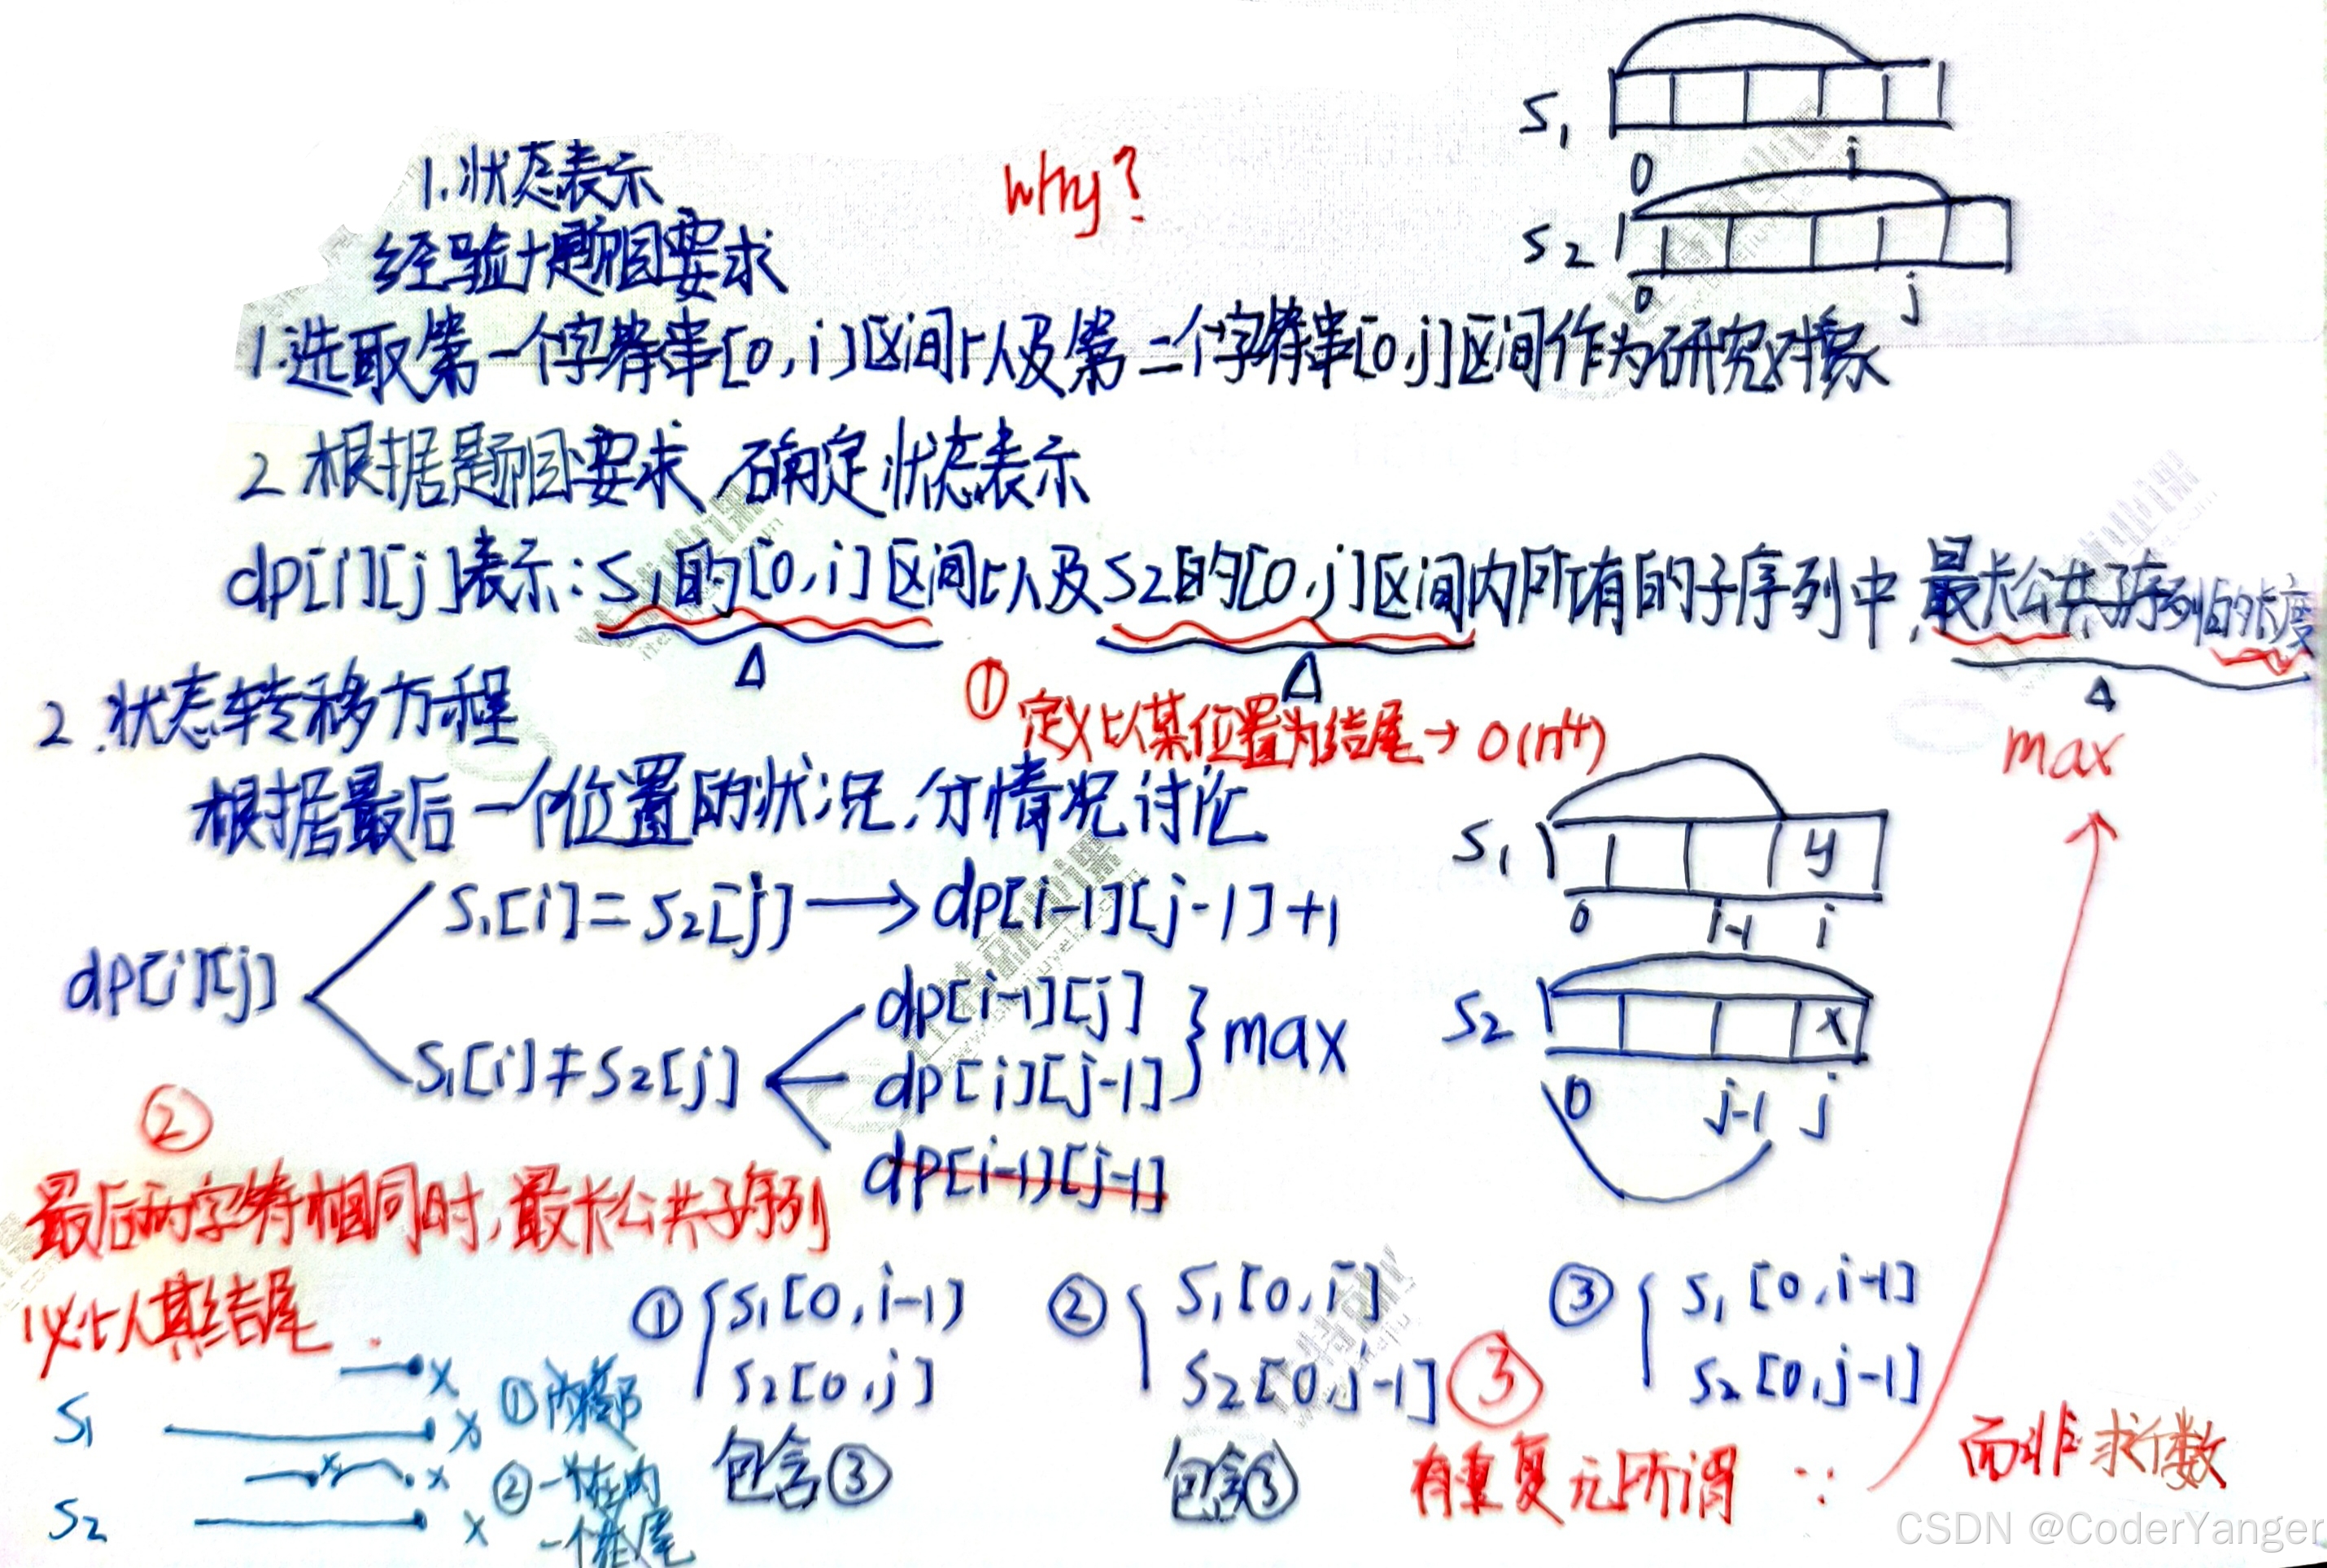 S1
0 i
1.状态表示
why?
经验+题目要求
S2
0 j
1.选取第一个字符串[0,i]区间以及第二个字符串[0,j]区间作为研究对象
2 根据题目要求,确定状态表示
dp[i][j]表示:S1的[0,i]区间以及S2的[0,j]区间内所有的子序列中,最长公共子序列的长度
Δ Δ Δ
2.状态转移方程
① 定义以某位置为结尾→O(n⁴)
max
根据最后一个位置的状况,分情况讨论
S1 y
0 i-1 i
S1[i]=S2[j]→dp[i-1][j-1]+1
dp[i][j]
dp[i-1][j]
S1[i]≠S2[j]
dp[i][j-1]
} max
dp[i-1][j-1]
S2 x
0 j-1 j
②
最后两字符相同时,最长公共子序列
必以其结尾
① S1[0,i-1]
S2[0,j]
包含③
② S1[0,i]
S2[0,j-1]
包含③
③ S1[0,i-1]
S2[0,j-1]
③
有重复无所谓 ∵
而非求个数
x
S1 x
x x
S2 x
①内部
②一个在内
一个在尾
CSDN @CoderYanger